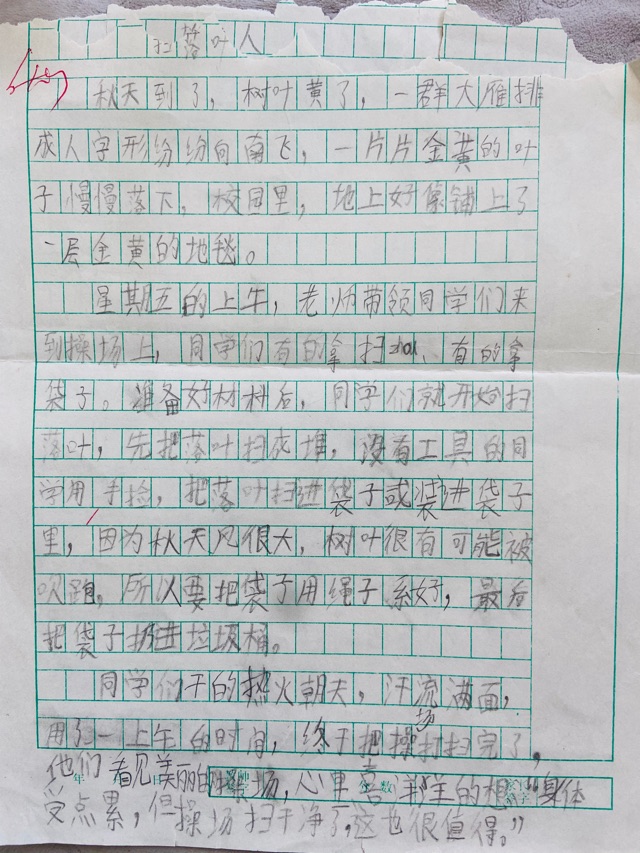 扫落叶人
秋天到了，树叶黄了，一群大雁排
成人字形纷纷向南飞，一片片金黄的叶
子慢慢落下，校园里，地上好像铺上了
一层金黄的地毯。
星期五的上午，老师带领同学们来
到操场上，同学们有的拿扫zhou、有的拿
袋子。准备好材料后，同学们就开始扫
落叶，先把落叶扫成堆，没有工具的同
学用手捡，把落叶扫进袋子或装进袋子
里，因为秋天风很大，树叶很有可能被
吹跑，所以要把袋子用绳子系好，最后
把袋子扔进垃圾桶。
同学们干的热火朝天，汗流满面，
用了一上午的时间，终于把操场打扫完了，
他们看见美丽的操场，心里喜洋洋的想“身体
受点累，但操场扫干净了，这也很值得。”